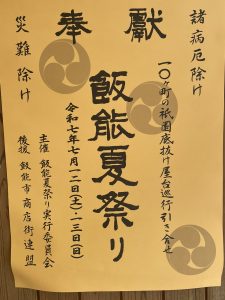 奉献
諸病厄除け
一〇ヶ町の祇園底抜け屋台巡行引き合せ
飯能夏祭り
令和七年七月一二日(土)・一三日(日)
主催 飯能夏祭り実行委員会
後援 飯能市商店街連盟
災難除け